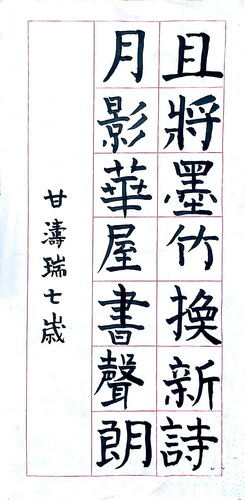 且將墨竹換新詩
月影華屋書聲朗
甘濤瑞七歲